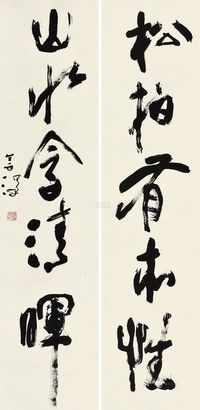 松柏有本性
山水含清暉